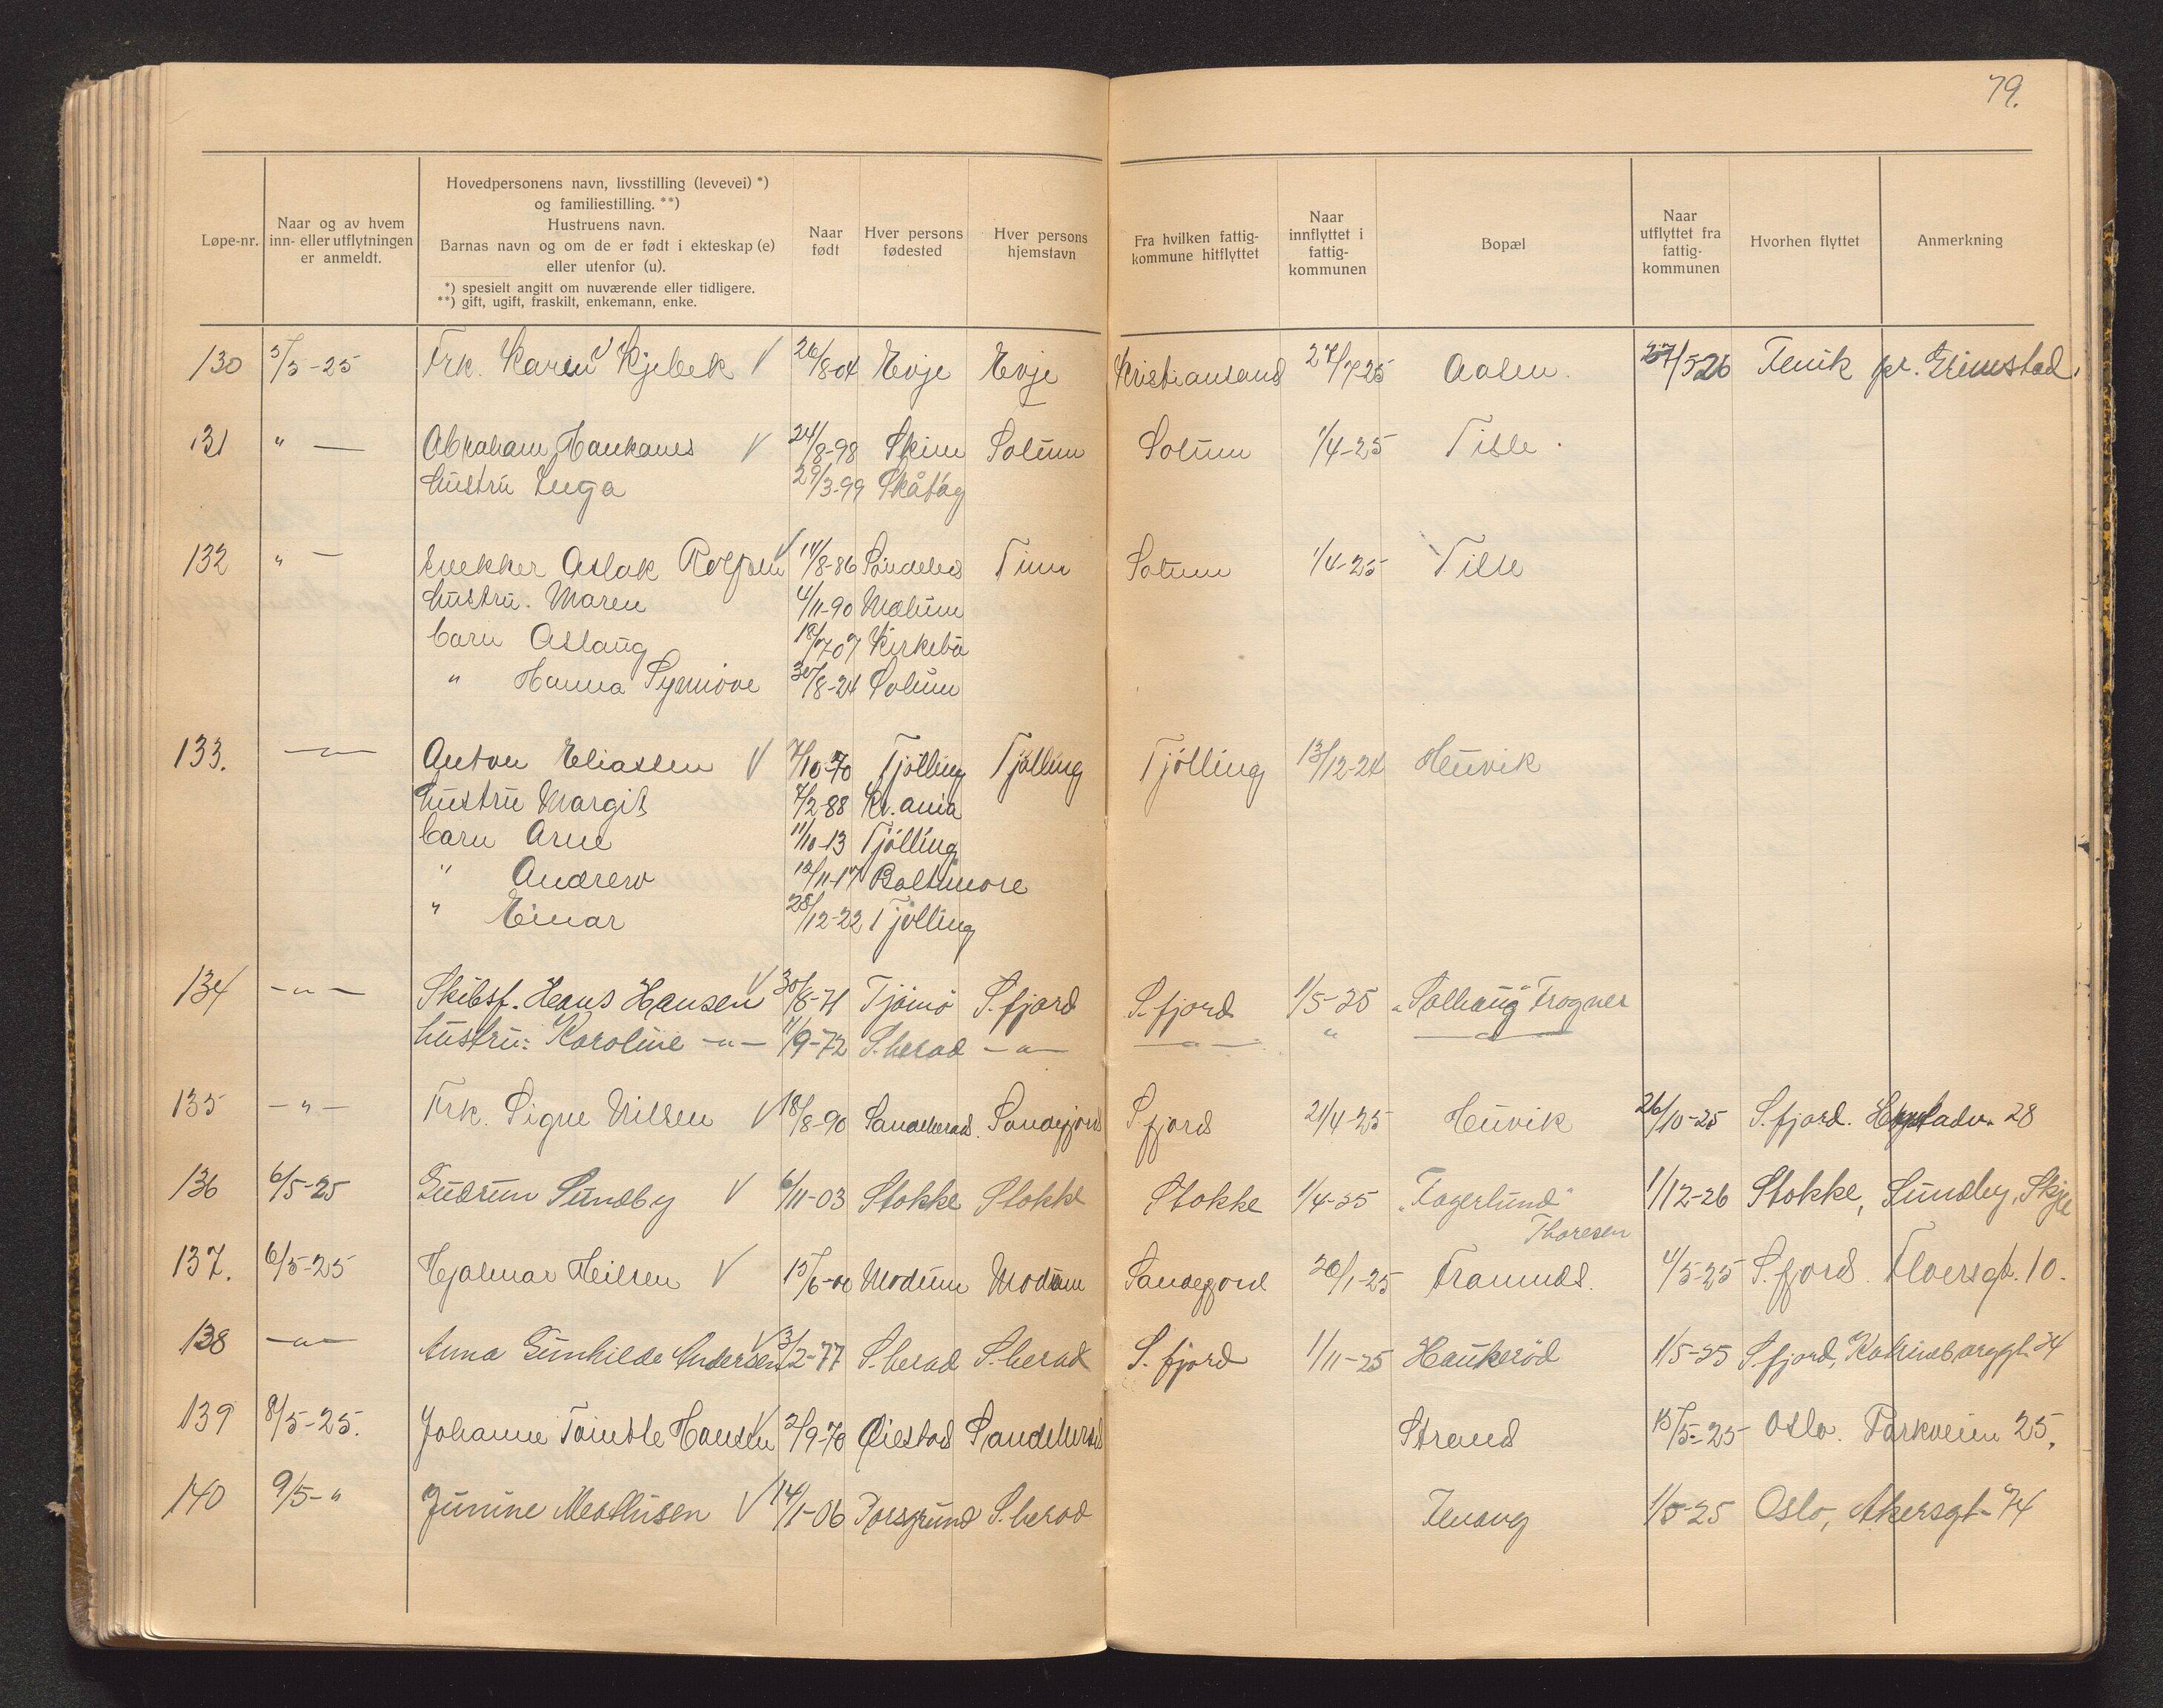 79.
Løpe-nr.
Naar og av hvem
inn- eller utflytningen
er anmeldt.
Hovedpersonens navn, livsstilling (levevei) *)
og familiestilling. **)
Hustruens navn.
Barnas navn og om de er født i ekteskap (e)
eller utenfor (u).
*) spesielt angitt om nuværende eller tidligere.
**) gift, ugift, fraskilt, enkemann, enke.
Naar
født
Hver persons
fødested
Hver persons
hjemstavn
Fra hvilken fattig-
kommune hitflyttet
Naar
innflyttet i
fattig-
kommunen
Bopæl
Naar
utflyttet fra
fattig-
kommunen
Hvorhen flyttet
Anmerkning
130 5/5-25 Frk. Karen Kjebek 26/8-04 Evje Evje Kristiansand 27/7-25 Aalen. 27/5 26 Fevik pr. Grimstad.
131 " — Abraham Haukanes 24/8-98 Skien Solum Solum 1/4-25
hustru Inga 29/3-99 Skåtøy
132 " — Aslak 14/8-86 Søndeled Solum 1/4-25
hustru. Maren 4/11-90 Mælum
barn Aslaug 18/7 07 Kirkebø
" Hanna Synnöve 30/8-24 Solum
133. —"— Anton Eliassen 7/10-70 Tjölling Tjölling Tjölling 13/12-24 Heuvik
hustru Margit 7/2-88 Kr.ania
barn Arne 11/10-13 Tjölling
" Andrew 12/11-17 Baltimore
" Einar 28/12-22 Tjölling
134 —"— Skibsf. Hans Hansen 30/8-71 Tjömö S.fjord S.fjord 1/5-25 "Solhaug" Frogner
hustru: Karoline —"— 11/9-72 S.herad —"— —"— " —"—
135 —"— Frk. Signe Nilsen 18/8-90 Sandeherad. Sandefjord S fjord 21/4-25 Heuvik 26/10-25 S.fjord. 28
136 6/5-25 Gudrun Sundby 6/11-03 Stokke Stokke Stokke 1/4-25 "Fagerlund" 1/12-26 Stokke, Sundby, Skjee
Thoresen
137. 6/5-25 Hjalmar Heilsen 15/6-00 Modum Modum Sandefjord 20/1-25 Framnæs. 1/5-25 S.fjord. 10.
138 —"— Anna Gunhilde Andersen 3/2-77 S.herad S.herad S.fjord 1/11-25 Haukeröd 1/5-25 S.fjord,
139 8/5-25. Johanne Hansen 2/9-70 Øiestad Sandeherad Strand 15/5-25 Oslo. Parkveien 25.
140 9/5-" Junine Mathisen 14/1-06 Porsgrund S.herad 1/5-25 Oslo, Akersgt-74